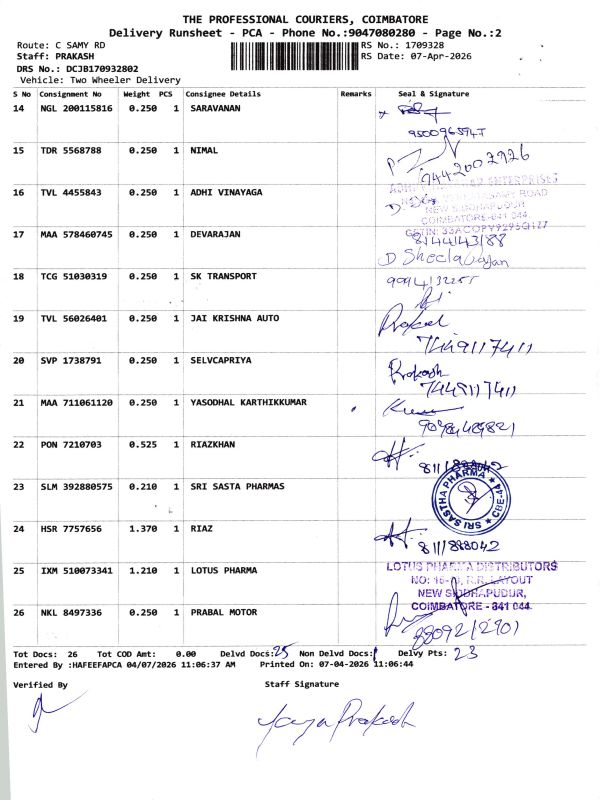 THE PROFESSIONAL COURIERS, COIMBATORE
Delivery Runsheet - PCA - Phone No.:9047080280 - Page No.:2
Route: C SAMY RD
RS No.: 1709328
Staff: PRAKASH
RS Date: 07-Apr-2026
DRS No.: DCJB170932802
Vehicle: Two Wheeler Delivery
S No Consignment No Weight PCS Consignee Details Remarks Seal & Signature
14 NGL 200115816 0.250 1 SARAVANAN
15 TDR 5568788 0.250 1 NIMAL
9442002926
16 TVL 4455843 0.250 1 ADHI VINAYAGA
ENTERPRISES
ROAD
NEW SIDDHAPUDUR
COIMBATORE-641 044.
17 MAA 578460745 0.250 1 DEVARAJAN
8144143188
D Sheela
18 TCG 51030319 0.250 1 SK TRANSPORT
19 TVL 56026401 0.250 1 JAI KRISHNA AUTO
Prakash
7449117411
20 SVP 1738791 0.250 1 SELVCAPRIYA
Prakash
7449117411
21 MAA 711061120 0.250 1 YASODHAL KARTHIKKUMAR
22 PON 7210703 0.525 1 RIAZKHAN
23 SLM 392880575 0.210 1 SRI SASTA PHARMAS
SRI SASTHA PHARMA CBE-44
24 HSR 7757656 1.370 1 RIAZ
8111888042
25 IXM 510073341 1.210 1 LOTUS PHARMA
LOTUS PHARMA DISTRIBUTORS
R.R. LAYOUT
NEW SIDDHAPUDUR,
COIMBATORE - 641 044.
26 NKL 8497336 0.250 1 PRABAL MOTOR
8809212901
Tot Docs: 26 Tot COD Amt: 0.00 Delvd Docs: 25 Non Delvd Docs: 1 Delvy Pts: 23
Entered By :HAFEEFAPCA 04/07/2026 11:06:37 AM Printed On: 07-04-2026 11:06:44
Verified By
Staff Signature
Jaya Prakash